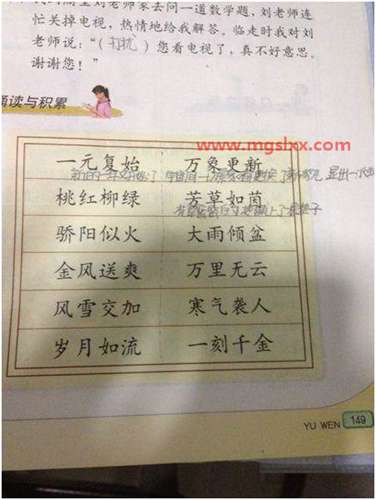 忙关掉电视，热情地给我解答。临走时我对刘
老师说：“（打扰）您看电视了，真不好意思。
谢谢您！”
诵读与积累
www.mgslxx.com
一元复始 万象更新
桃红柳绿 芳草如茵
骄阳似火 大雨倾盆
金风送爽 万里无云
风雪交加 寒气袭人
岁月如流 一刻千金
YU WEN 149